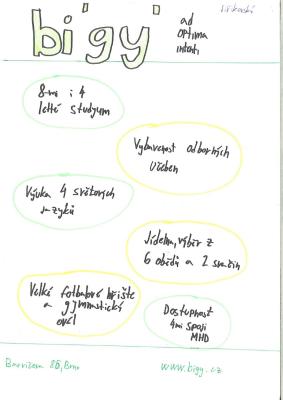 bigy
ad
optima
intenti
8-mi i 4
leté studyum
Vybavenost odborných
učeben
Výuka 4 světových
jazyků
Jídelna, výběr z
6 obědů a 2 svačin
Velké fotbalové hřiště
a gymnastický
ovál
Dostupnost
4mi spoji
MHD
Barvičova 85, Brno
www.bigy.cz